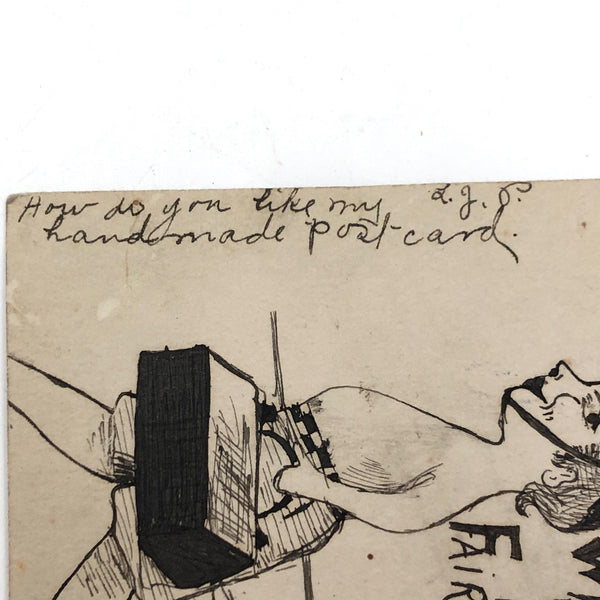 How do you like my L.J.P.
handmade post-card.
FAIR